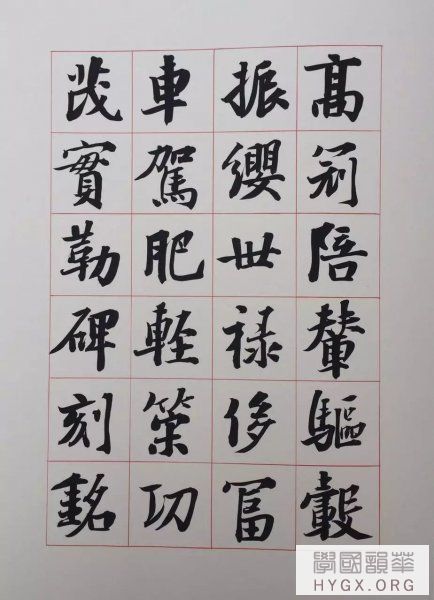 高冠陪輦驅轂
振纓世禄侈富
車駕肥軽策功
茂實勒碑刻銘
華韻國學
HYGX.ORG